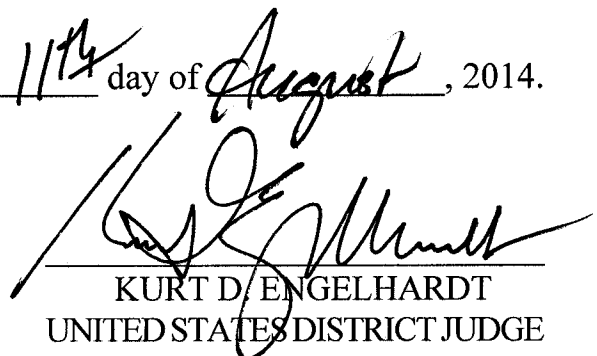 11th day of August, 2014.
KURT D. ENGELHARDT
UNITED STATES DISTRICT JUDGE